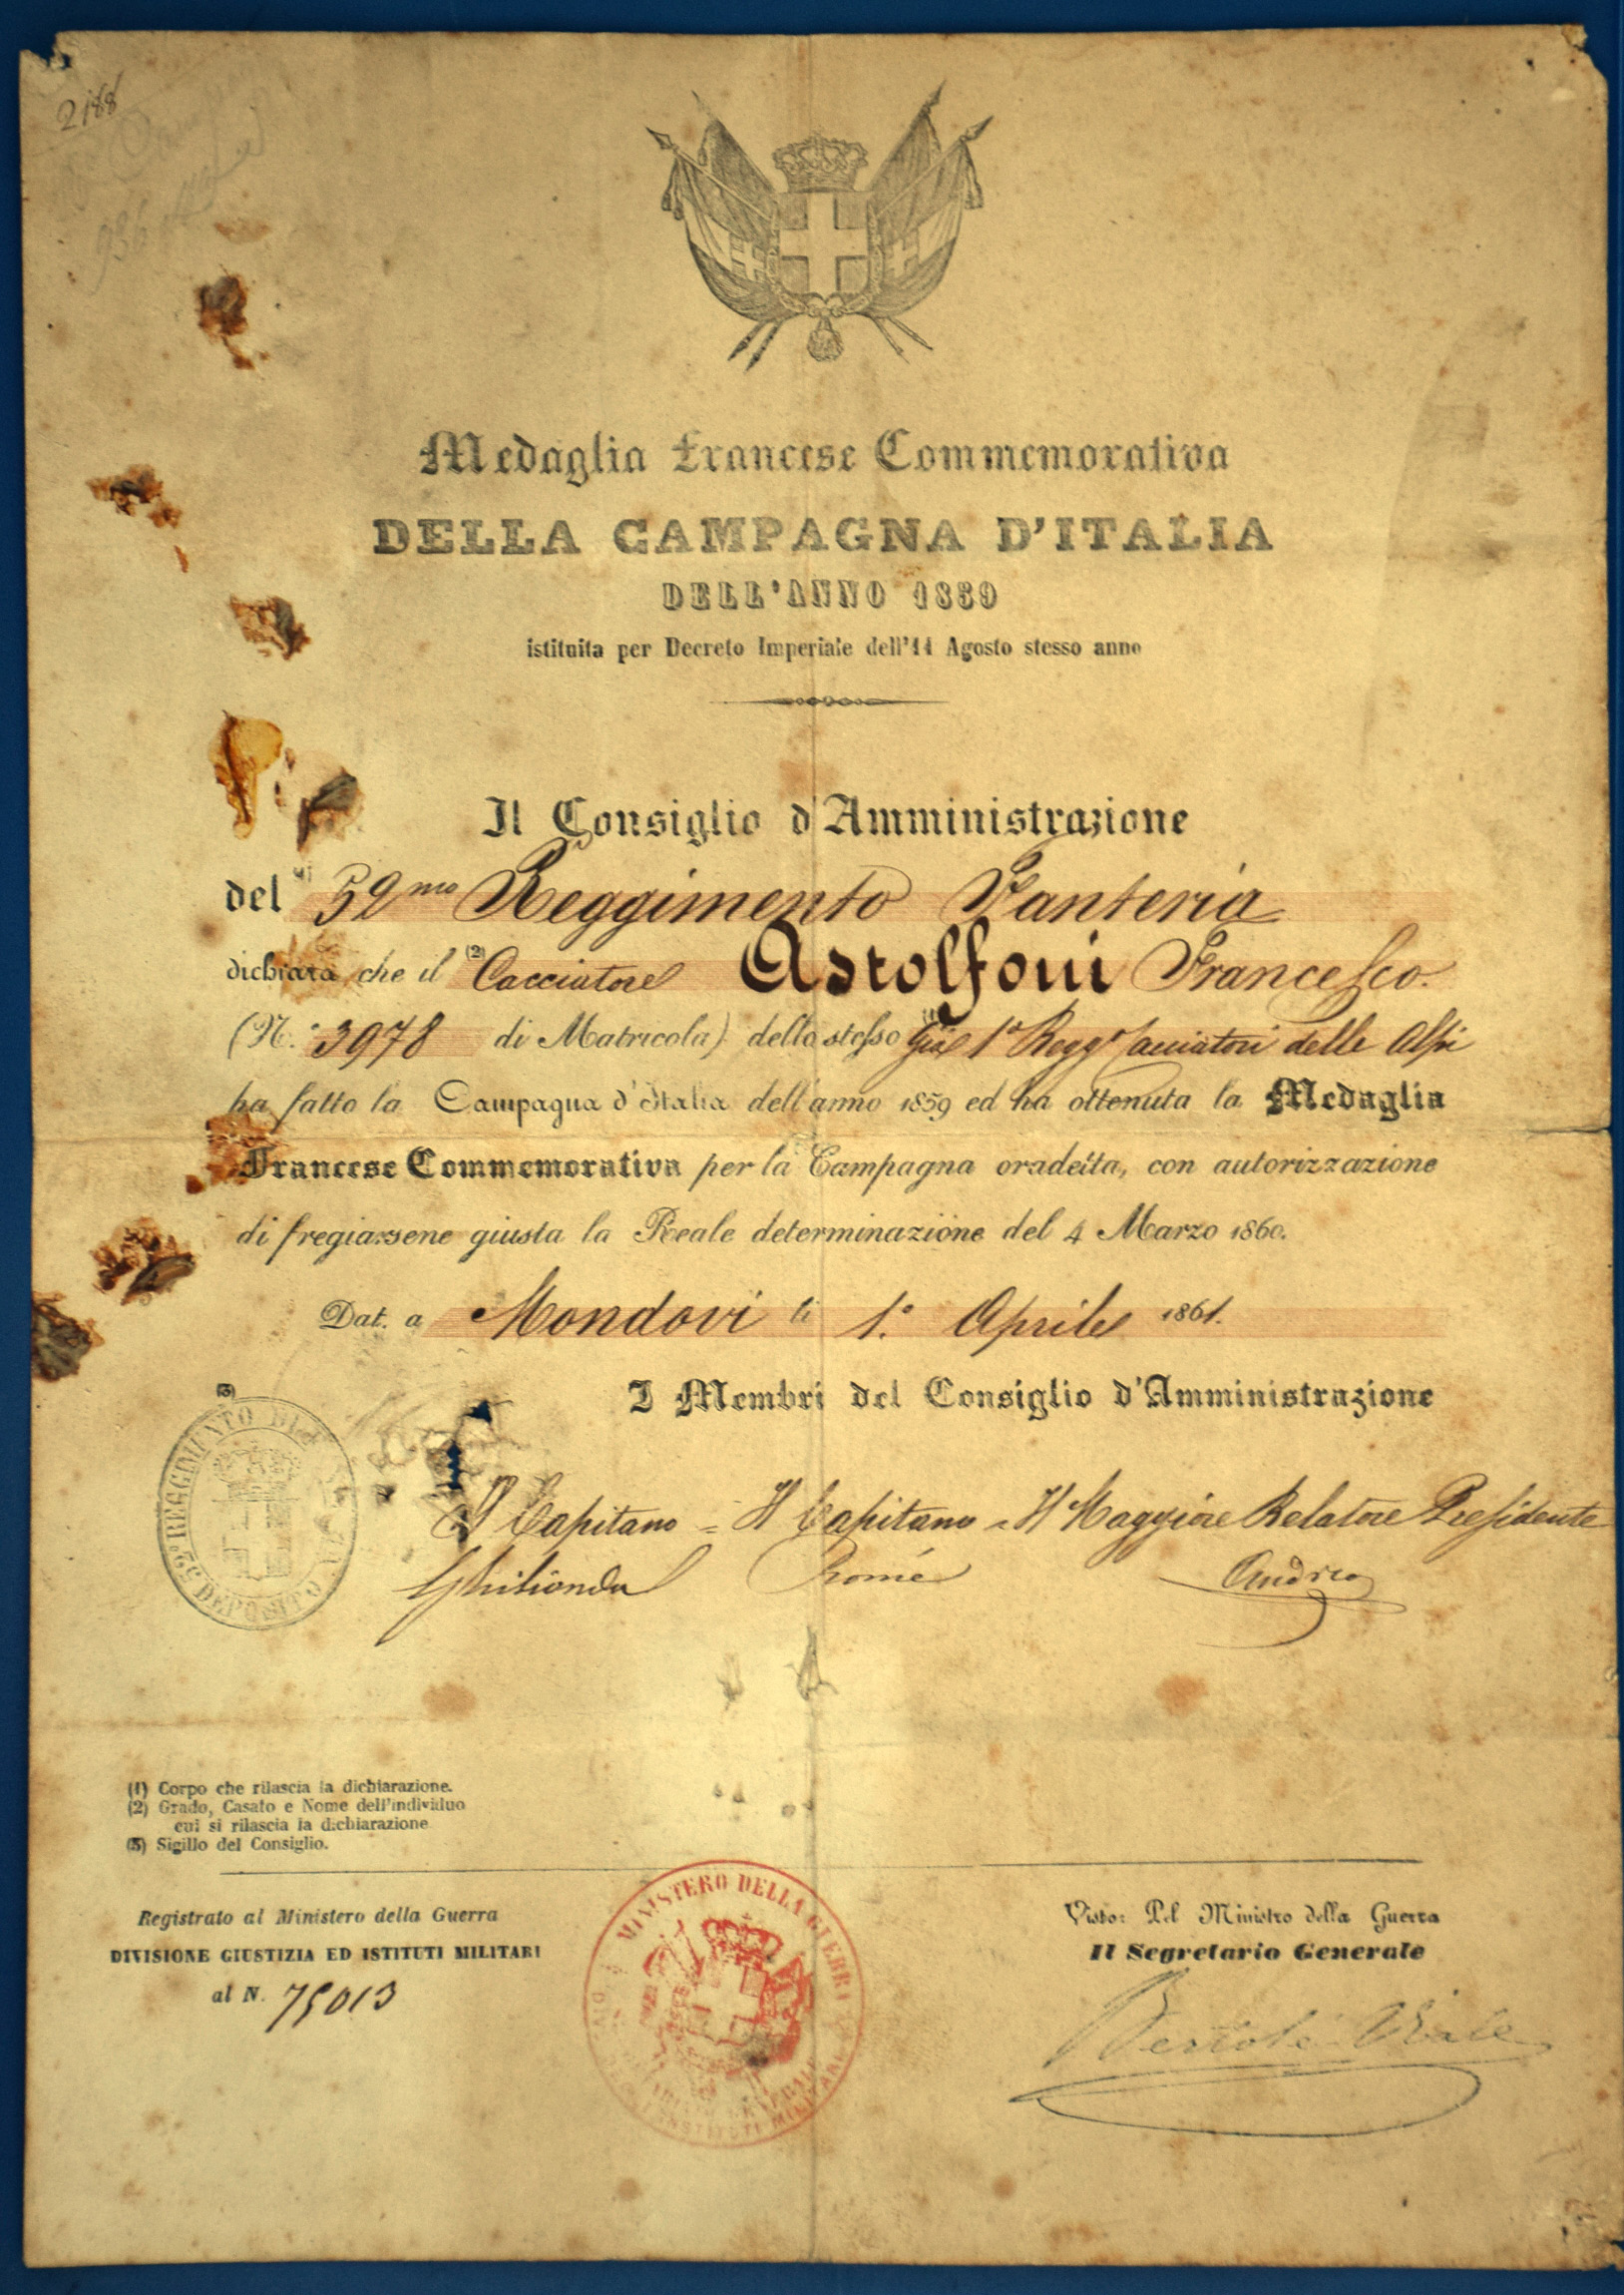 2188
936
Medaglia Francese Commemorativa
DELLA CAMPAGNA D'ITALIA
DELL'ANNO 1859
istituita per Decreto Imperiale dell'11 Agosto stesso anno
Il Consiglio d'Amministrazione
del (1) 52mo Reggimento Fanteria
dichiara che il (2) Cacciatore Astolfoni Francesco.
(N.° 3978 di Matricola) dello stesso (1) Già 1° Reggto Cacciatori delle Alpi
ha fatto la Campagna d'Italia dell'anno 1859 ed ha ottenuta la Medaglia
Francese Commemorativa per la Campagna oradetta, con autorizzazione
di fregiarsene giusta la Reale determinazione del 4 Marzo 1860.
Dat. a Mondovì li 1.° Aprile 1861.
I Membri del Consiglio d'Amministrazione
(3)
REGGIMENTO DI
DEPOSITO
Il Capitano = Il Capitano = Il Maggiore Relatore Presidente
Ghilionda Andrea
(1) Corpo che rilascia la dichiarazione.
(2) Grado, Casato e Nome dell'individuo
cui si rilascia la dichiarazione
(3) Sigillo del Consiglio.
Registrato al Ministero della Guerra
DIVISIONE GIUSTIZIA ED ISTITUTI MILITARI
al N. 75013
MINISTERO DELLA GUERRA
ISTITUTI MILITARI
Visto: Pel Ministro della Guerra
Il Segretario Generale
Bertolè Viale